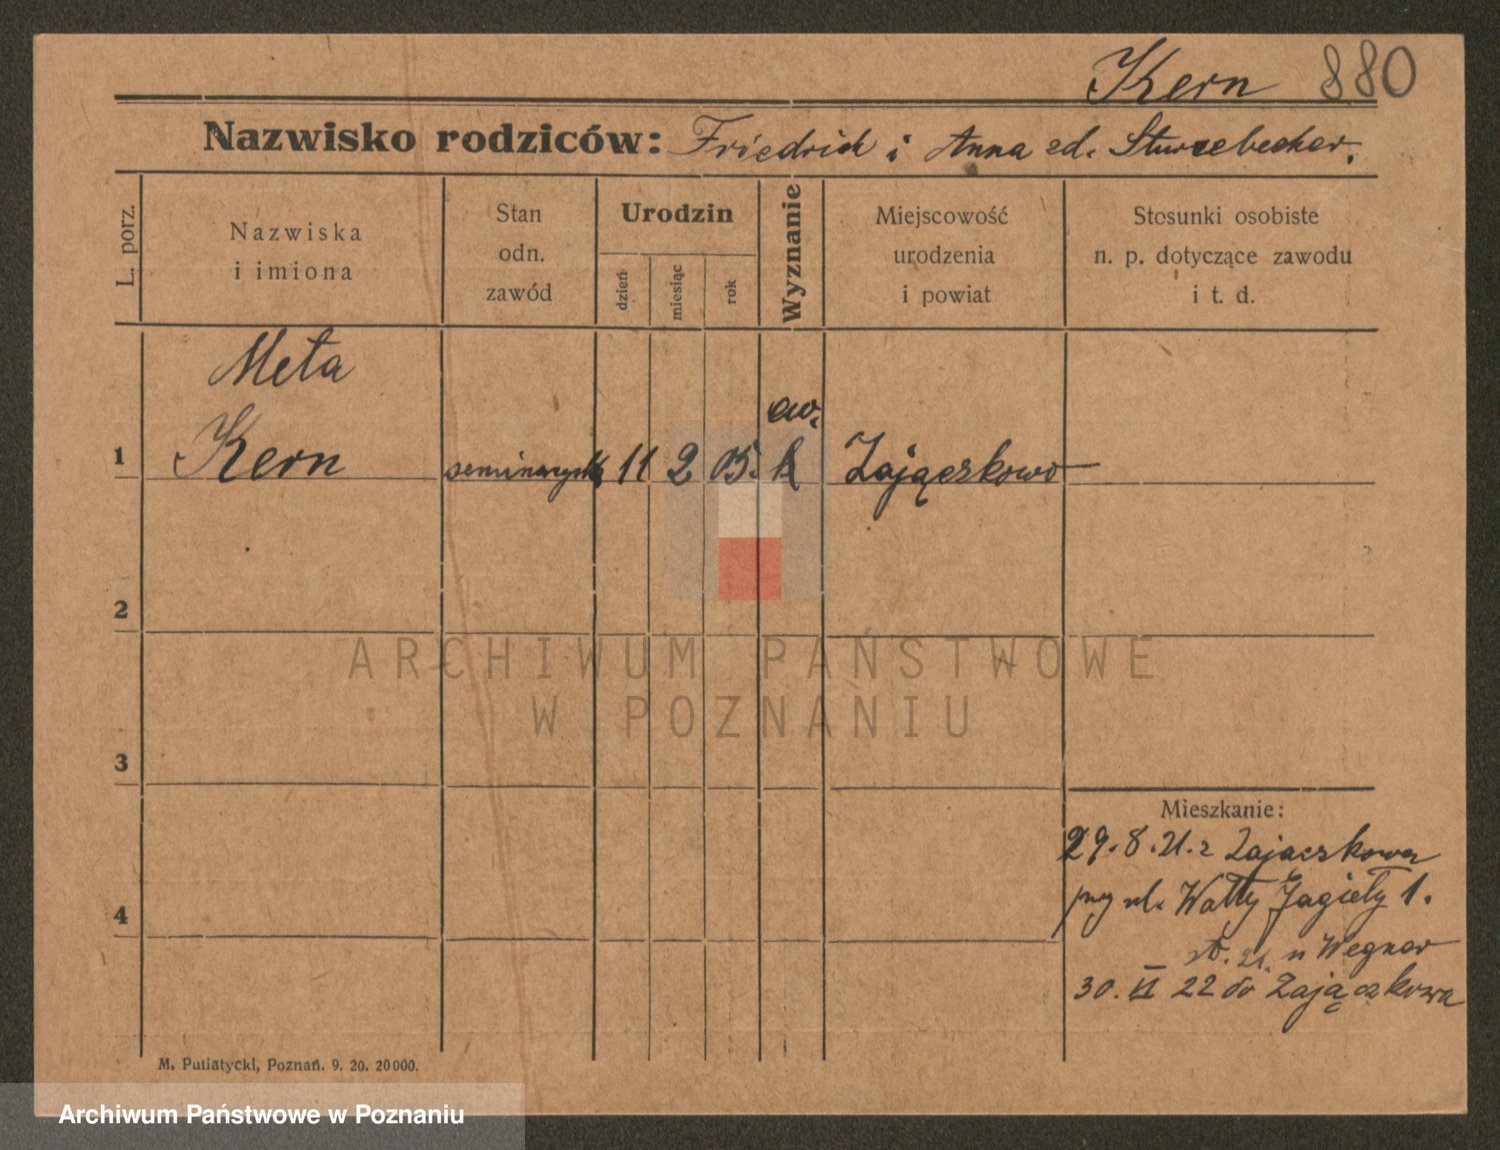 Kern 880
Nazwisko rodziców: Friedrich i Anna zd. Sturzebecher.
L. porz.
Nazwiska
i imiona
Stan
odn.
zawód
Urodzin
dzień
miesiąc
rok
Wyznanie
Miejscowość
urodzenia
i powiat
Stosunki osobiste
n. p. dotyczące zawodu
i t. d.
Meta
ew.
1 Kern 11 2 05. k Zajączkowo
2
ARCHIWUM PAŃSTWOWE
W POZNANIU
3
Mieszkanie:
29.8.21. z Zajaczkowa
przy ul. Wały Jagieły 1.
4
u Wegner
30. VI 22 do Zajączkowa
M. Putiatycki, Poznań. 9. 20. 20000.
Archiwum Państwowe w Poznaniu